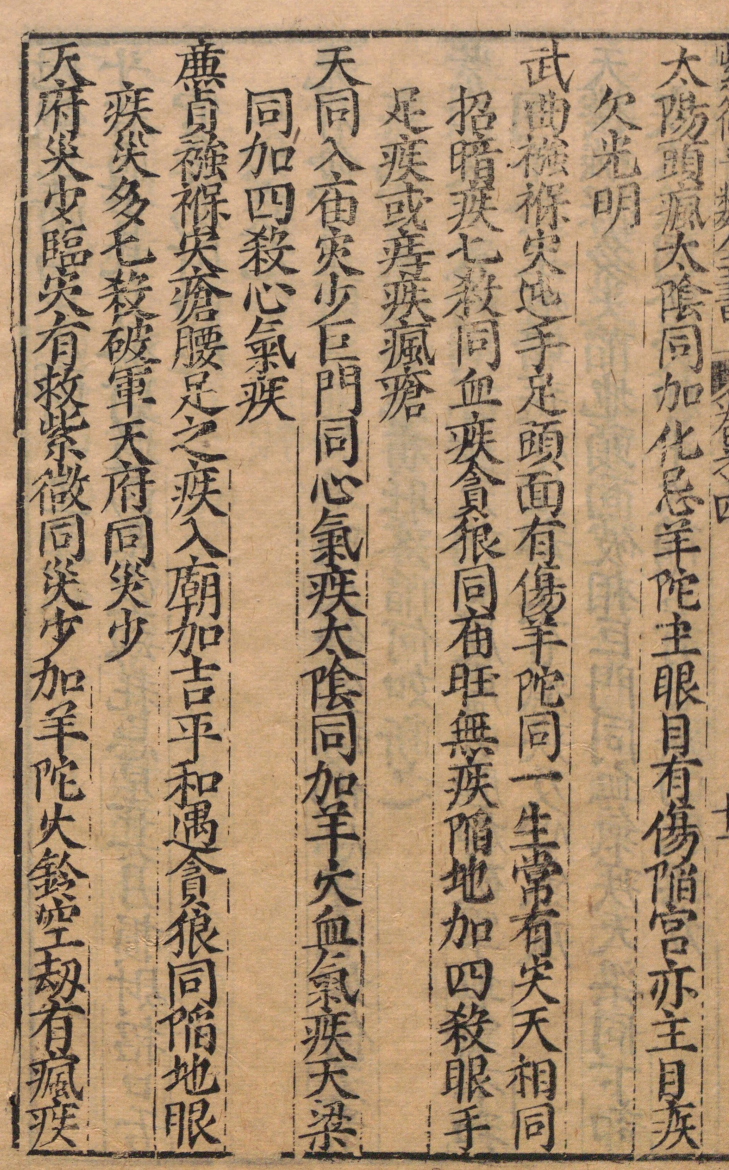 太陽頭瘋太陰同加化忌羊陀主眼目有傷陷宮亦主目疾
欠光明
武曲襁褓災迍手足頭面有傷羊陀同一生常有災天相同
招暗疾七殺同血疾貪狼同庙旺無疾陷地加四殺眼手
足疾或痔疾瘋瘡
天同入庙灾少巨門同心氣疾太陰同加羊火血氣疾天梁
同加四殺心氣疾
亷貞襁褓災瘡腰足之疾入廟加吉平和遇貪狼同陷地眼
疾災多七殺破軍天府同災少
天府災少臨災有救紫微同災少加羊陀火鈴空劫有瘋疾